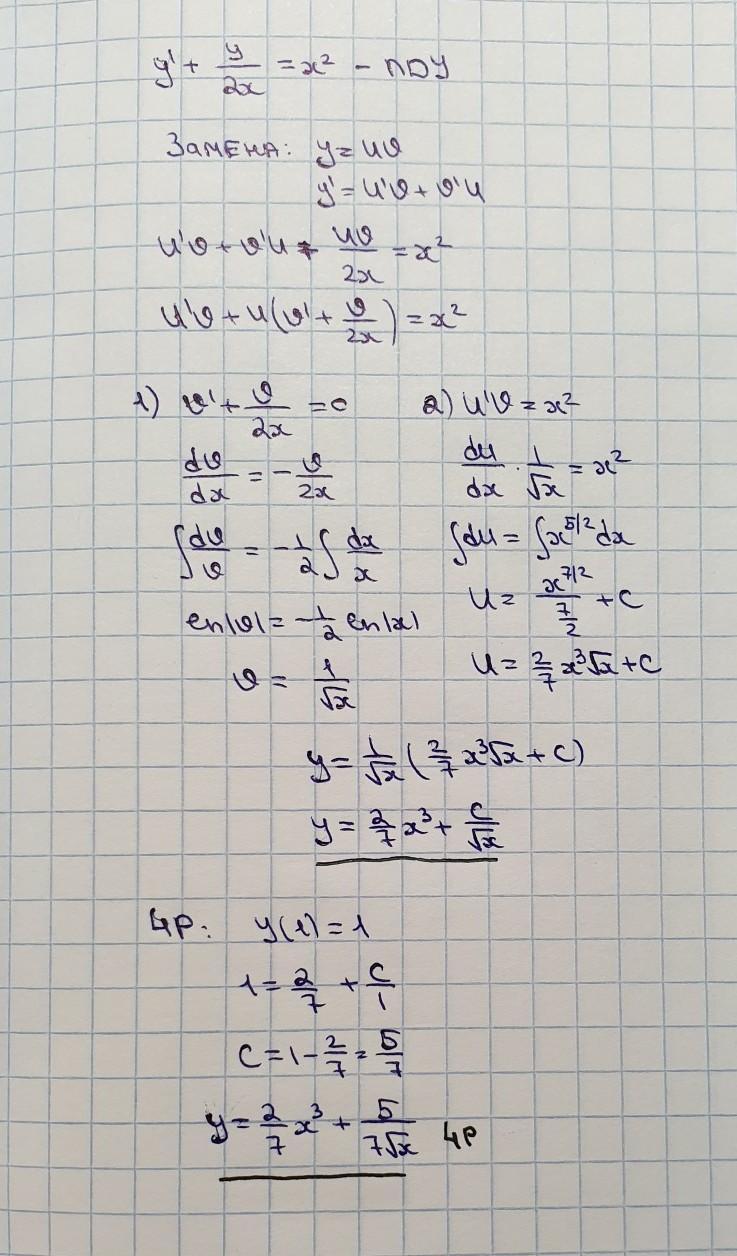 y' + y/2x = x² – ЛДУ
ЗАМЕНА: y = uv
y' = u'v + v'u
u'v + v'u + uv/2x = x²
u'v + u(v' + v/2x) = x²
1) v' + v/2x = 0
dv/dx = -v/2x
∫dv/v = -1/2 ∫dx/x
ln|v| = -1/2 ln|x|
v = 1/√x
2) u'v = x²
du/dx · 1/√x = x²
∫du = ∫x^5/2 dx
u = x^7/2 / 7/2 + C
u = 2/7 x³√x + C
y = 1/√x (2/7 x³√x + C)
y = 2/7 x³ + C/√x
ЧР: y(1) = 1
1 = 2/7 + C/1
C = 1 - 2/7 = 5/7
y = 2/7 x³ + 5/7√x ЧР